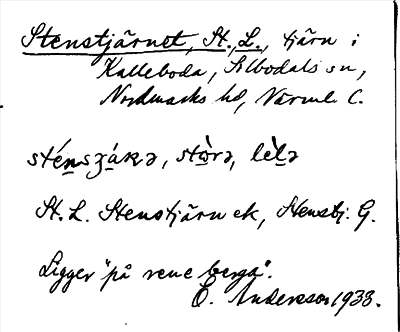 Stenstjärnet, St., L., tjärn i
Kalleboda, Älbodals sn,
Nordmarks hd, Värml. C.
sténsʒáʀə, stòrə, lèlə
St. L. Stenstjärn ek, Stenstj. G.
Ligger "på rene berga".
E. Andersson 1933.